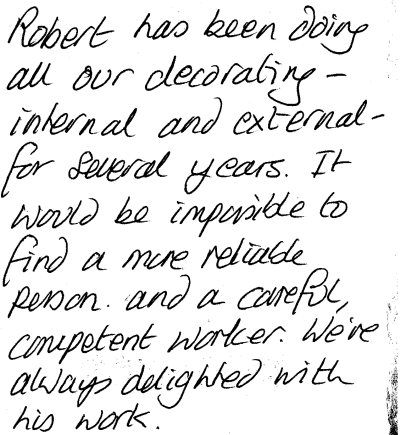 Robert has been doing
all our decorating –
internal and external -
for several years. It
would be impossible to
find a more reliable
person. and a careful,
competent worker. We're
always delighted with
his work.